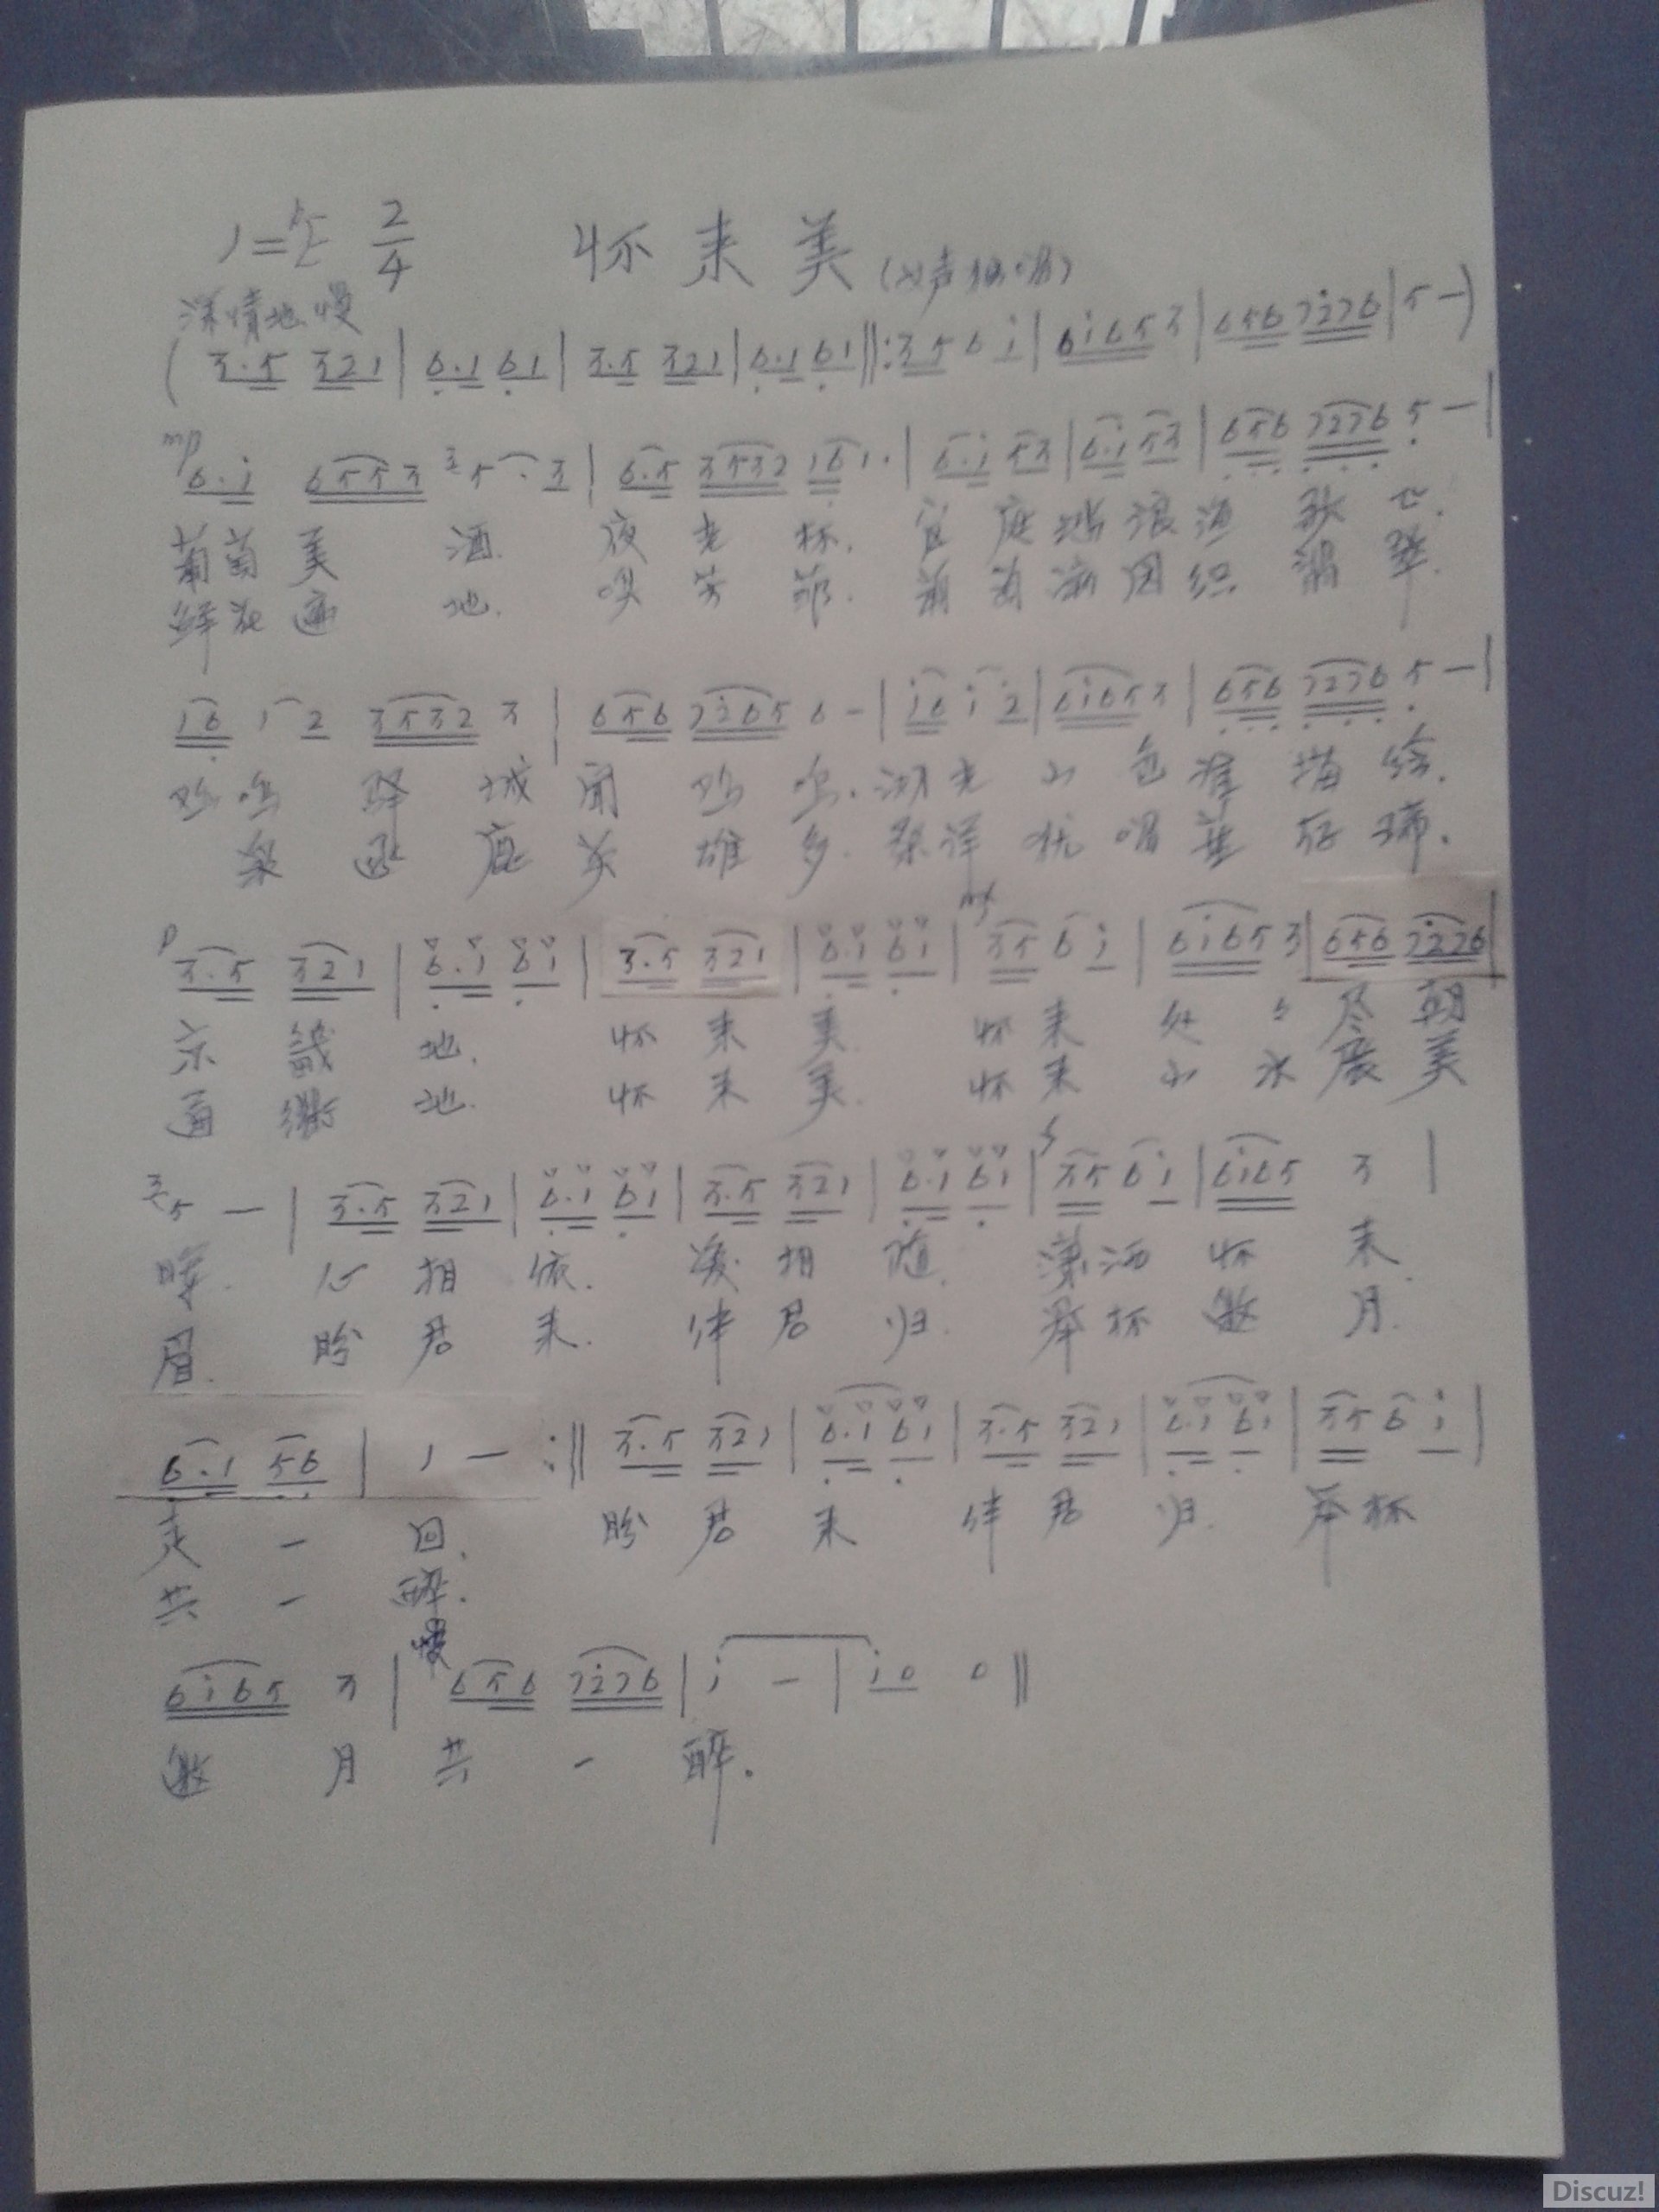 1= 2/4 怀来美
深情地 慢
(3·5 321 | 6·1 61 | 3·5 321 | 6·1 61 ‖: 35 6 i | 6i65 3 | 656 7i76 | 5 — )
mp
6·i 6553 5· 3 | 6·5 3532 161· | 6·i 53 | 6·1 53 | 656 7276 5 — |
葡萄美 酒. 夜光杯. 官庭 浪
鲜花遍 地. 芳菲. 葡萄 园织 翠.
16 1 2 3532 3 | 656 7265 6 — | i6 i 2 | 6i65 3 | 656 7276 5 — |
鸡鸣驿城闻鸡鸣. 湖光山色谁描绘.
鹿英雄多. 桑洋犹唱董存瑞.
p mf
3·5 321 | 6·1 61 | 3·5 321 | 6·1 61 | 35 6 i | 6i65 3 | 656 7276 |
京畿地. 怀来美. 怀来处 尽朝
通衢地. 怀来美. 怀来山水展美
f
5 — | 3·5 321 | 6·1 61 | 3·5 321 | 6·1 61 | 35 6 i | 6i65 3 |
晖. 心相依. 爱相随. 潇洒怀来.
眉. 盼君来. 伴君归. 举杯邀月.
6·1 56 | 1 — :‖ 3·5 321 | 6·1 61 | 3·5 321 | 6·1 61 | 35 6 i |
走一回. 盼君来 伴君归. 举杯
共一醉.
慢
6i65 3 | 656 7276 | i — | i0 0 ‖
邀月共一醉.
Discuz!